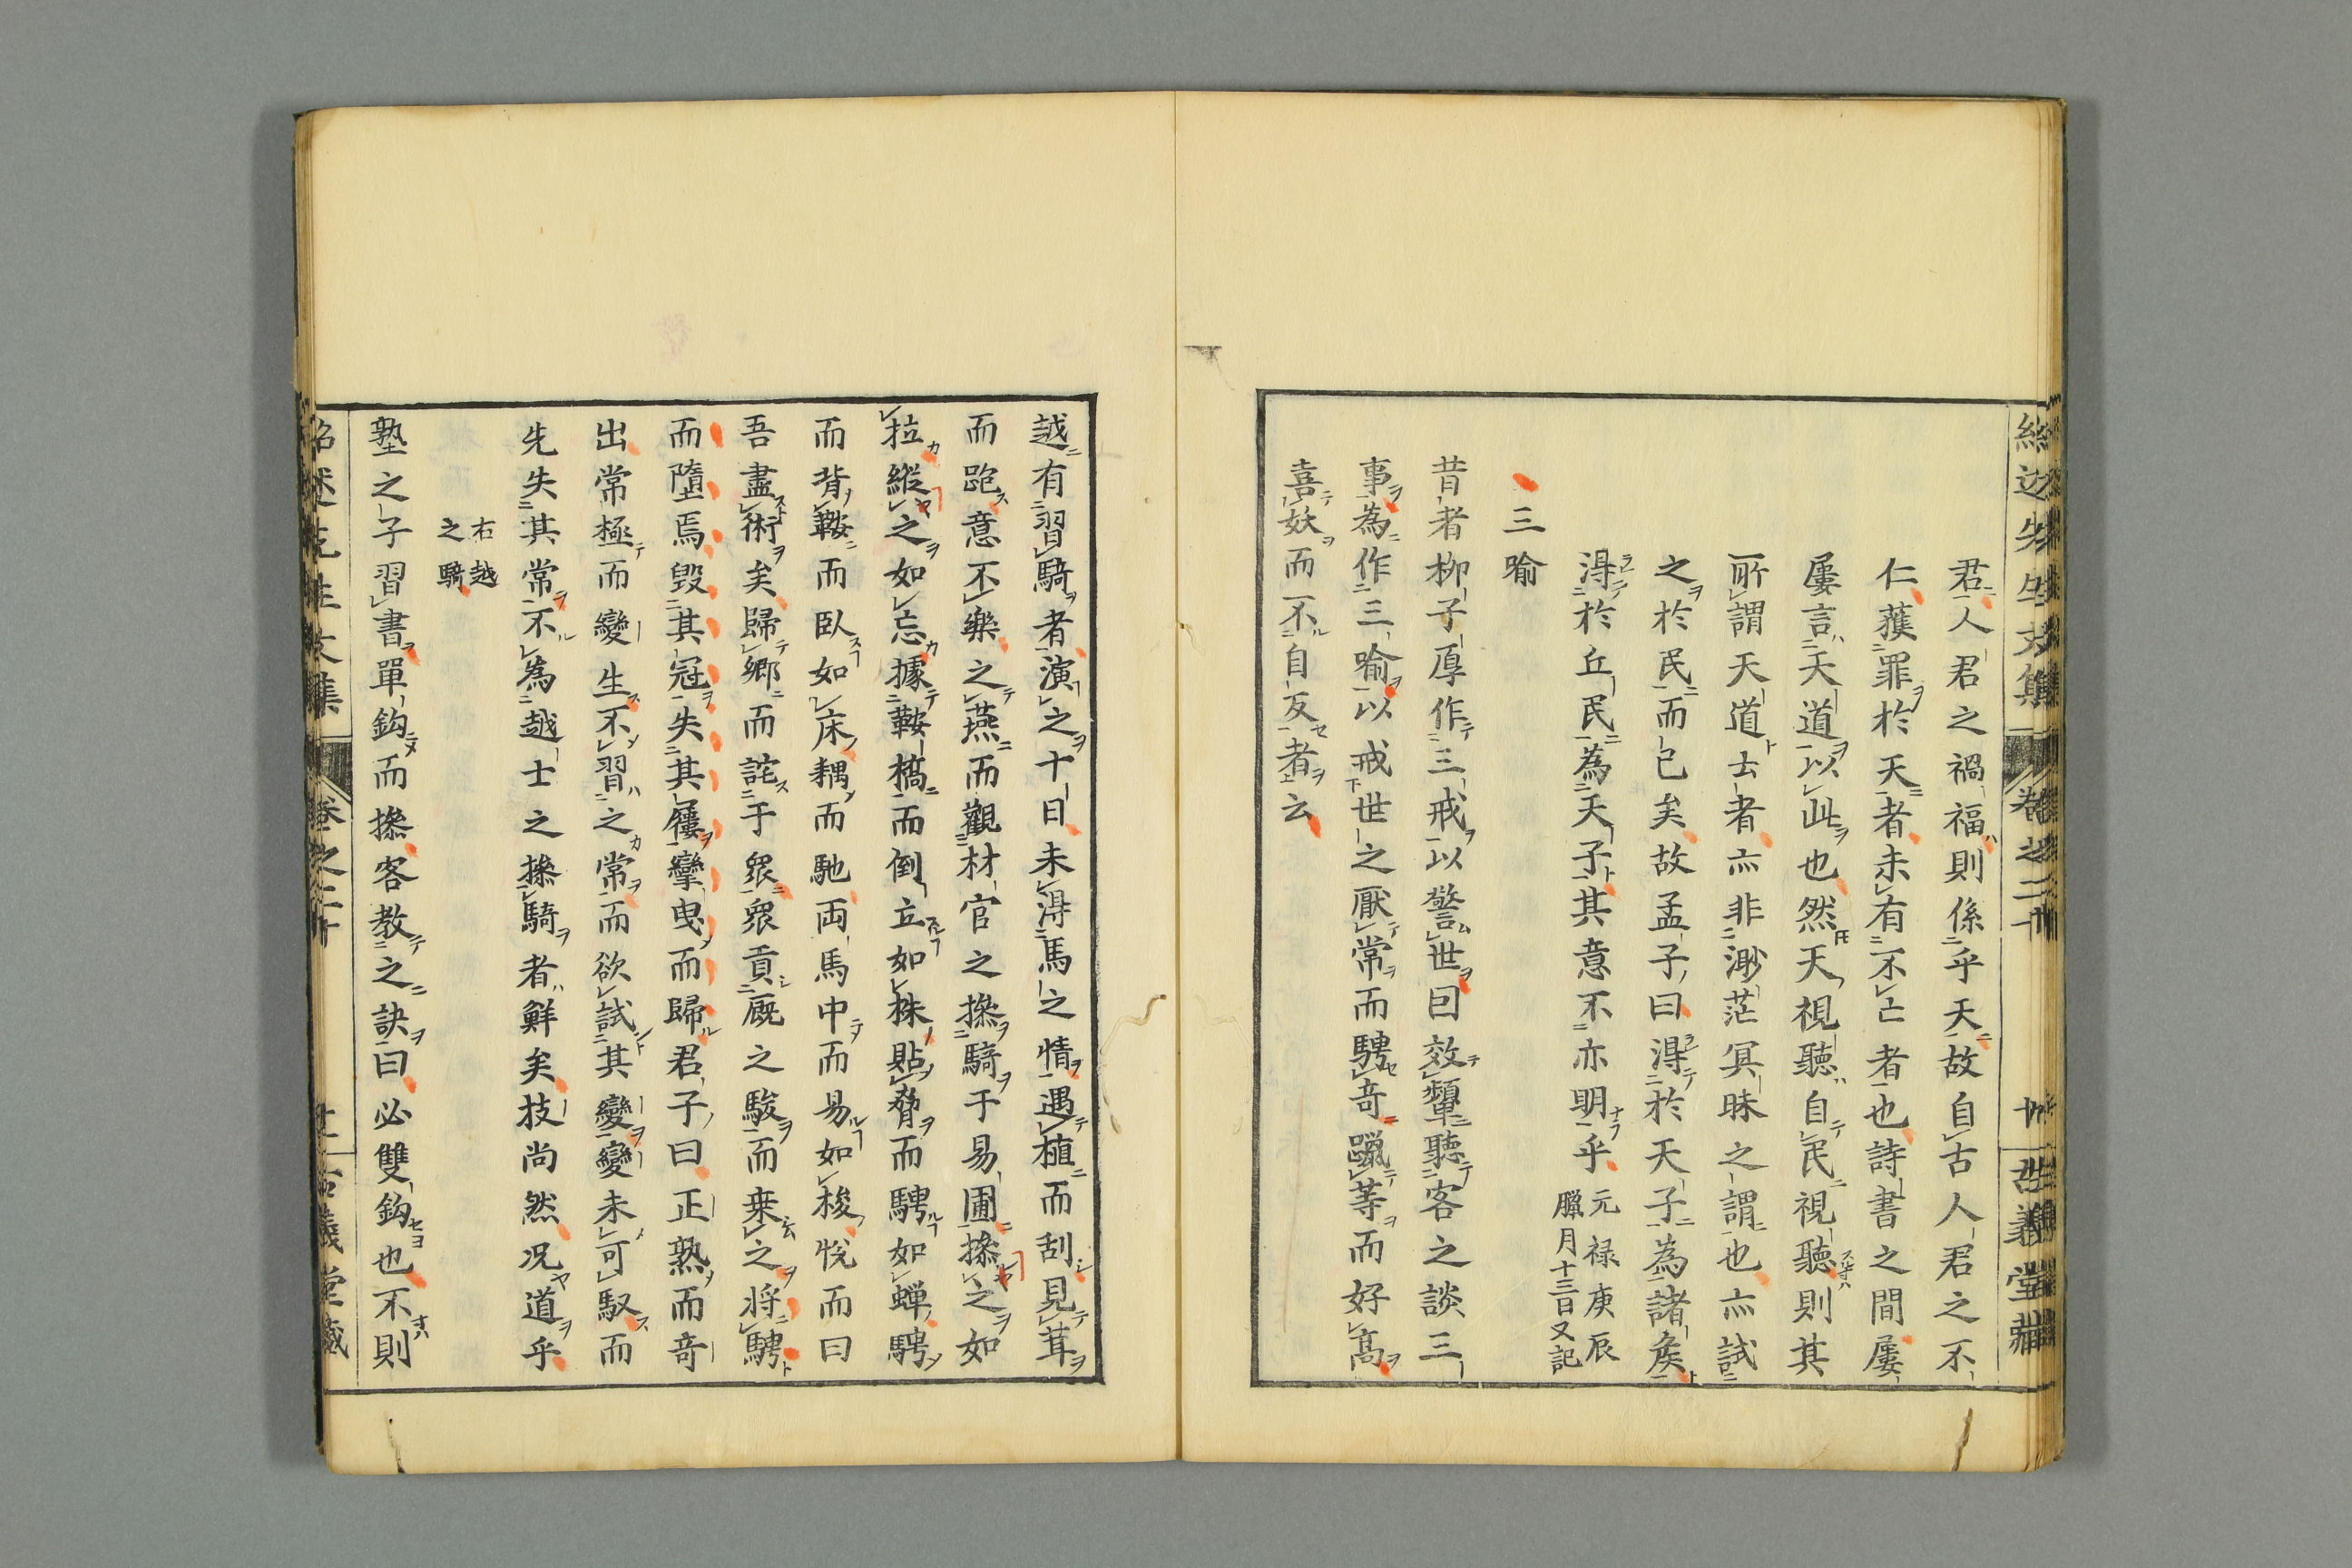 紹述先生文集
卷之二十
古義堂藏
君人君之禍福則係乎天故自古人君之不
仁獲罪於天者未有不亡者也詩書之間屢
屢言天道以此也然天視聽自民視聽則其
所謂天道云者亦非渺茫冥昧之謂也亦試
之於民而已矣故孟子曰得於天子為諸侯
得於丘民為天子其意不亦明乎元祿庚辰臘月十三日又記
三喻
昔者柳子厚作三戒以警世囙效顰聽客之談三
事為作三喻以戒世之厭常而騁奇躐等而好高
喜妖而不自反者云
越有習騎者演之十日未得馬之情遇植而刮見茸
而跑意不樂之燕而觀材官之操騎于易圃操之如
拉縱之如忘據鞍橋而倒立如株貼脅而騁如蟬騁
而背鞍而臥如床耦而馳両馬中而易如梭悅而曰
吾盡術矣歸鄉而詫于衆衆貢厩之駿而乗之将騁
而墮焉毀其冠失其屨攣曳而歸君子曰正熟而奇
出常極而變生不習之常而欲試其變變未可馭而
先失其常不為越士之操騎者鮮矣技尚然况道乎
右越之騎
塾之子習書單鈎而操客教之訣曰必雙鈎也不則
紹述先生文集
卷之二十
十一
古義堂藏